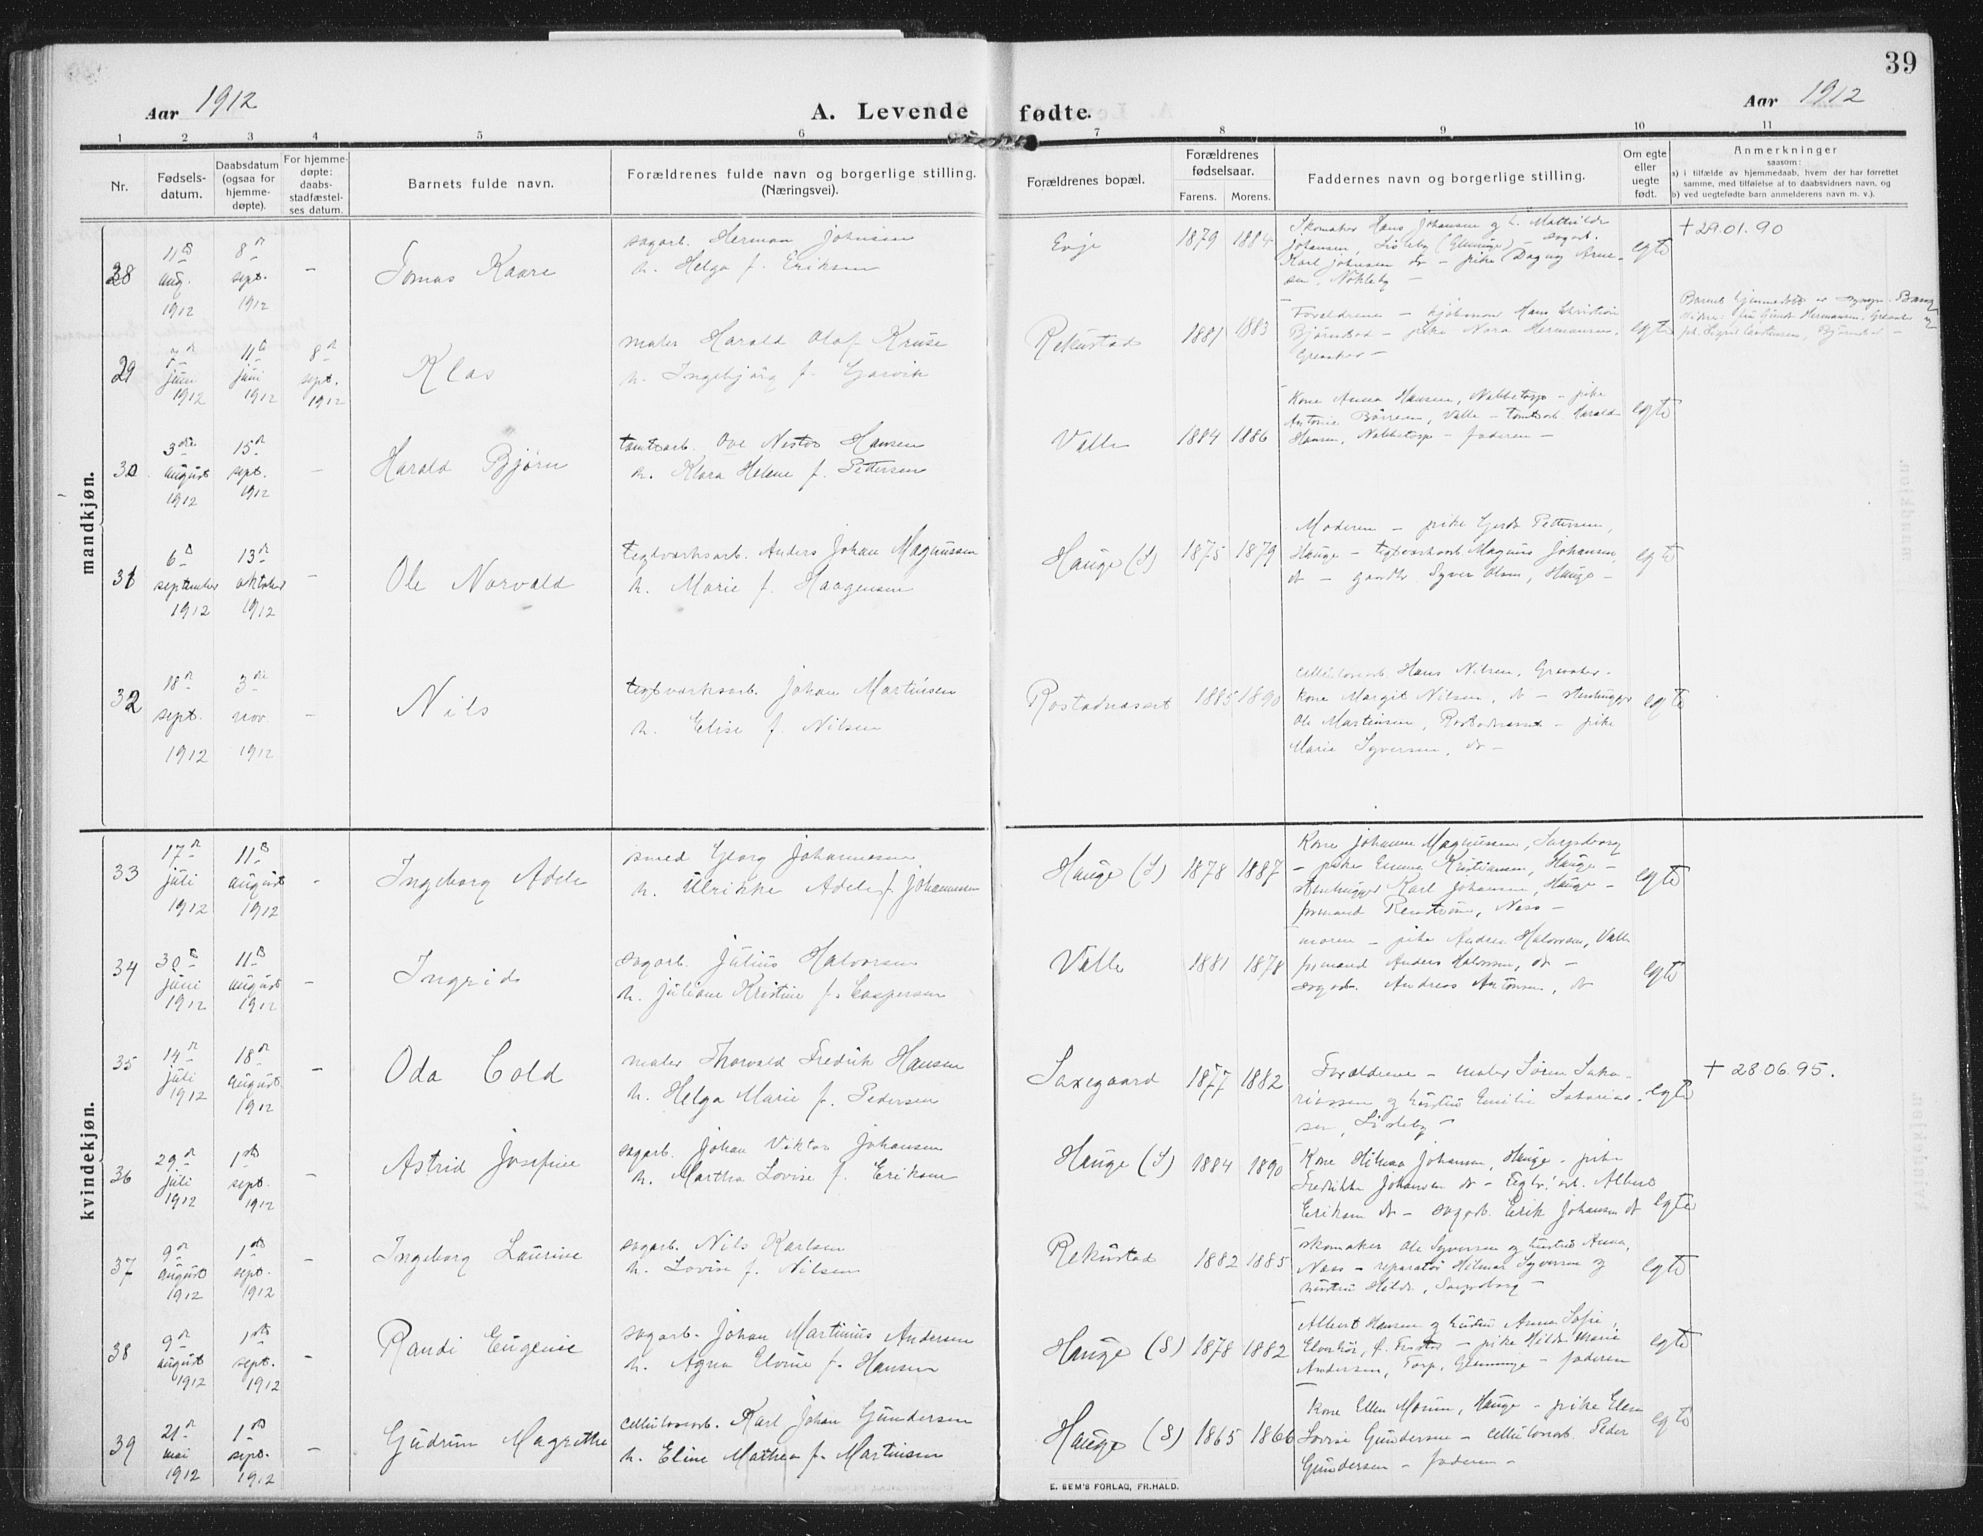 39
Aar 1912
A. Levende fødte.
Aar 1912
1 2 3 4 5 6 7 8 9 10 11
Nr.
Fødsels-
datum.
Daabsdatum
(ogsaa for
hjemme-
døpte).
For hjemme-
døpte:
daabs-
stadfæstel-
ses datum.
Barnets fulde navn.
Forældrenes fulde navn og borgerlige stilling.
(Næringsvei).
Forældrenes bopæl.
Forældrenes
fødselsaar.
Farens. Morens.
Faddernes navn og borgerlige stilling.
Om egte
eller
uegte
født.
Anmerkninger
saasom:
a) i tilfælde av hjemmedaab, hvem der har forrettet
samme, med tilføielse af to daabsvidners navn, og
b) ved uegtefødte barn anmelderens navn m. v.).
mandkjøn.
28
11 aug. 1912
8 sept. 1912
-
Tomas Kaare
sagarb. Herman Johnsen
h. Helga f. Eriksen
Evje
1879 1884
Skomaker Hans Johansen og h. Mathilde
Johansen, Lisleby (Glemmige) - sagarb.
Karl Johnsen do - pike Dagny Arne-
sen, Nokleby -
egte
+ 29.01.90
29
juni 1912
11 juni 1912
8 sept. 1912
Klas
maler Harald Olaf Kruse
h. Ingebjørg f. Gjørvik
Rekustad
1881 1883
Forældrene - Hans Christian
Bjørnstad - pike Nora Hermansen,
Greaker -
egte
30
3die august 1912
15 sept. 1912
-
Harald Bjørn
tomtearb. Ove Nestor Hansen
h. Klara Helene f. Pettersen
Valle
1884 1886
Kone Anna Hansen, Nabbetorp - pike
Antonie Børresen, Valle - tomtearb. Harald
Hansen, Nabbetorp - faderen -
egte
31
6 september 1912
13 oktober 1912
-
Ole Norvald
teglverksarb. Anders Johan Magnussen
h. Marie f. Haagensen
Hauge (S)
1875 1879
Moderen - pike Gerda Pettersen,
Hauge - teglverksarb Magnus Johansen,
do - gaardbr. Syver Olsen, Hauge -
egte
32
18 sept. 1912
3die nov. 1912
-
Nils
teglverksarb. Johan Martinsen
h. Elise f. Nilsen
Rostadnæsset
1885 1890
cellulosearb Hans Nilsen, Greaker -
Kone Margit Nilsen, do - stenhugger
Ole Martinsen, Rostadnæsset - pike
Marie Syversen, do -
egte
kvindekjøn.
33
17 juli 1912
11 august 1912
-
Ingeborg Adele
smed Georg Johannesen
h. Ulrikke Adele f. Johannesen
Hauge (S)
1878 1887
Kone Johanne Magnussen, Sarpsborg
- pike Emma Kristiansen, Hauge -
stenhugger Karl Johansen, Hauge -
formand Renstrøm, Næss -
egte
34
30 juni 1912
11 august 1912
-
Ingrid
sagarb. Julius Halvorsen
h. Juliane Kristine f. Caspersen
Valle
1881 1878
moren - pike Andrea Halvorsen, Valle
formand Anders Halvorsen, do -
sagarb. Andreas Antonsen, do
egte
35
14 juli 1912
18 august 1912
-
Oda Cold
maler Thorvald Fredrik Hansen
h. Helga Marie f. Pedersen
Saxegaard
1877 1882
Forældrene - maler Søren Saka-
riassen og hustru Emilie Sakarias-
sen, Lisleby -
egte
+ 28 06.95.
36
29 juli 1912
1ste sept. 1912
-
Astrid Josefine
sagarb. Johan Viktor Johansen
h. Martha Lovise f. Eriksen
Hauge (S)
1884 1890
Kone Hilma Johansen, Hauge - pike
Fredrikke Johansen do - Teglv. arb. Albert
Eriksen do - sagarb. Erik Johansen do
egte
37
9 august 1912
1ste sept. 1912
-
Ingeborg Laurine
sagarb. Nils Karlsen
h. Lovise f. Nilsen
Rekustad
1882 1885
skomaker Ole Syversen og hustru Anna,
Næss - reparatør Hilmar Syversen og
hustru Hilda, Sarpsborg -
egte
38
9 august 1912
1ste sept. 1912
-
Randi Eugenie
sagarb. Johan Martinius Andersen
h. Agna Elvine f. Hansen
Hauge (S)
1878 1882
Albert Hansen og hustru Anna Sofie,
Elverhøi, - pike Hilda Marie
Andersen, Torp, Glemminge - faderen
egte
39
21 mai 1912
1ste sept. 1912
-
Gudrun Magrethe
cellulosearb. Karl Johan Gundersen
h. Eline Mathea f. Martinsen
Hauge (S)
1865 1866
Kone Ellen Moum, Hauge - pike Elen
Lovise Gundersen - cellulosearb Peder
Gundersen - faderen -
egte
E. SEM'S FORLAG, FR.HALD.